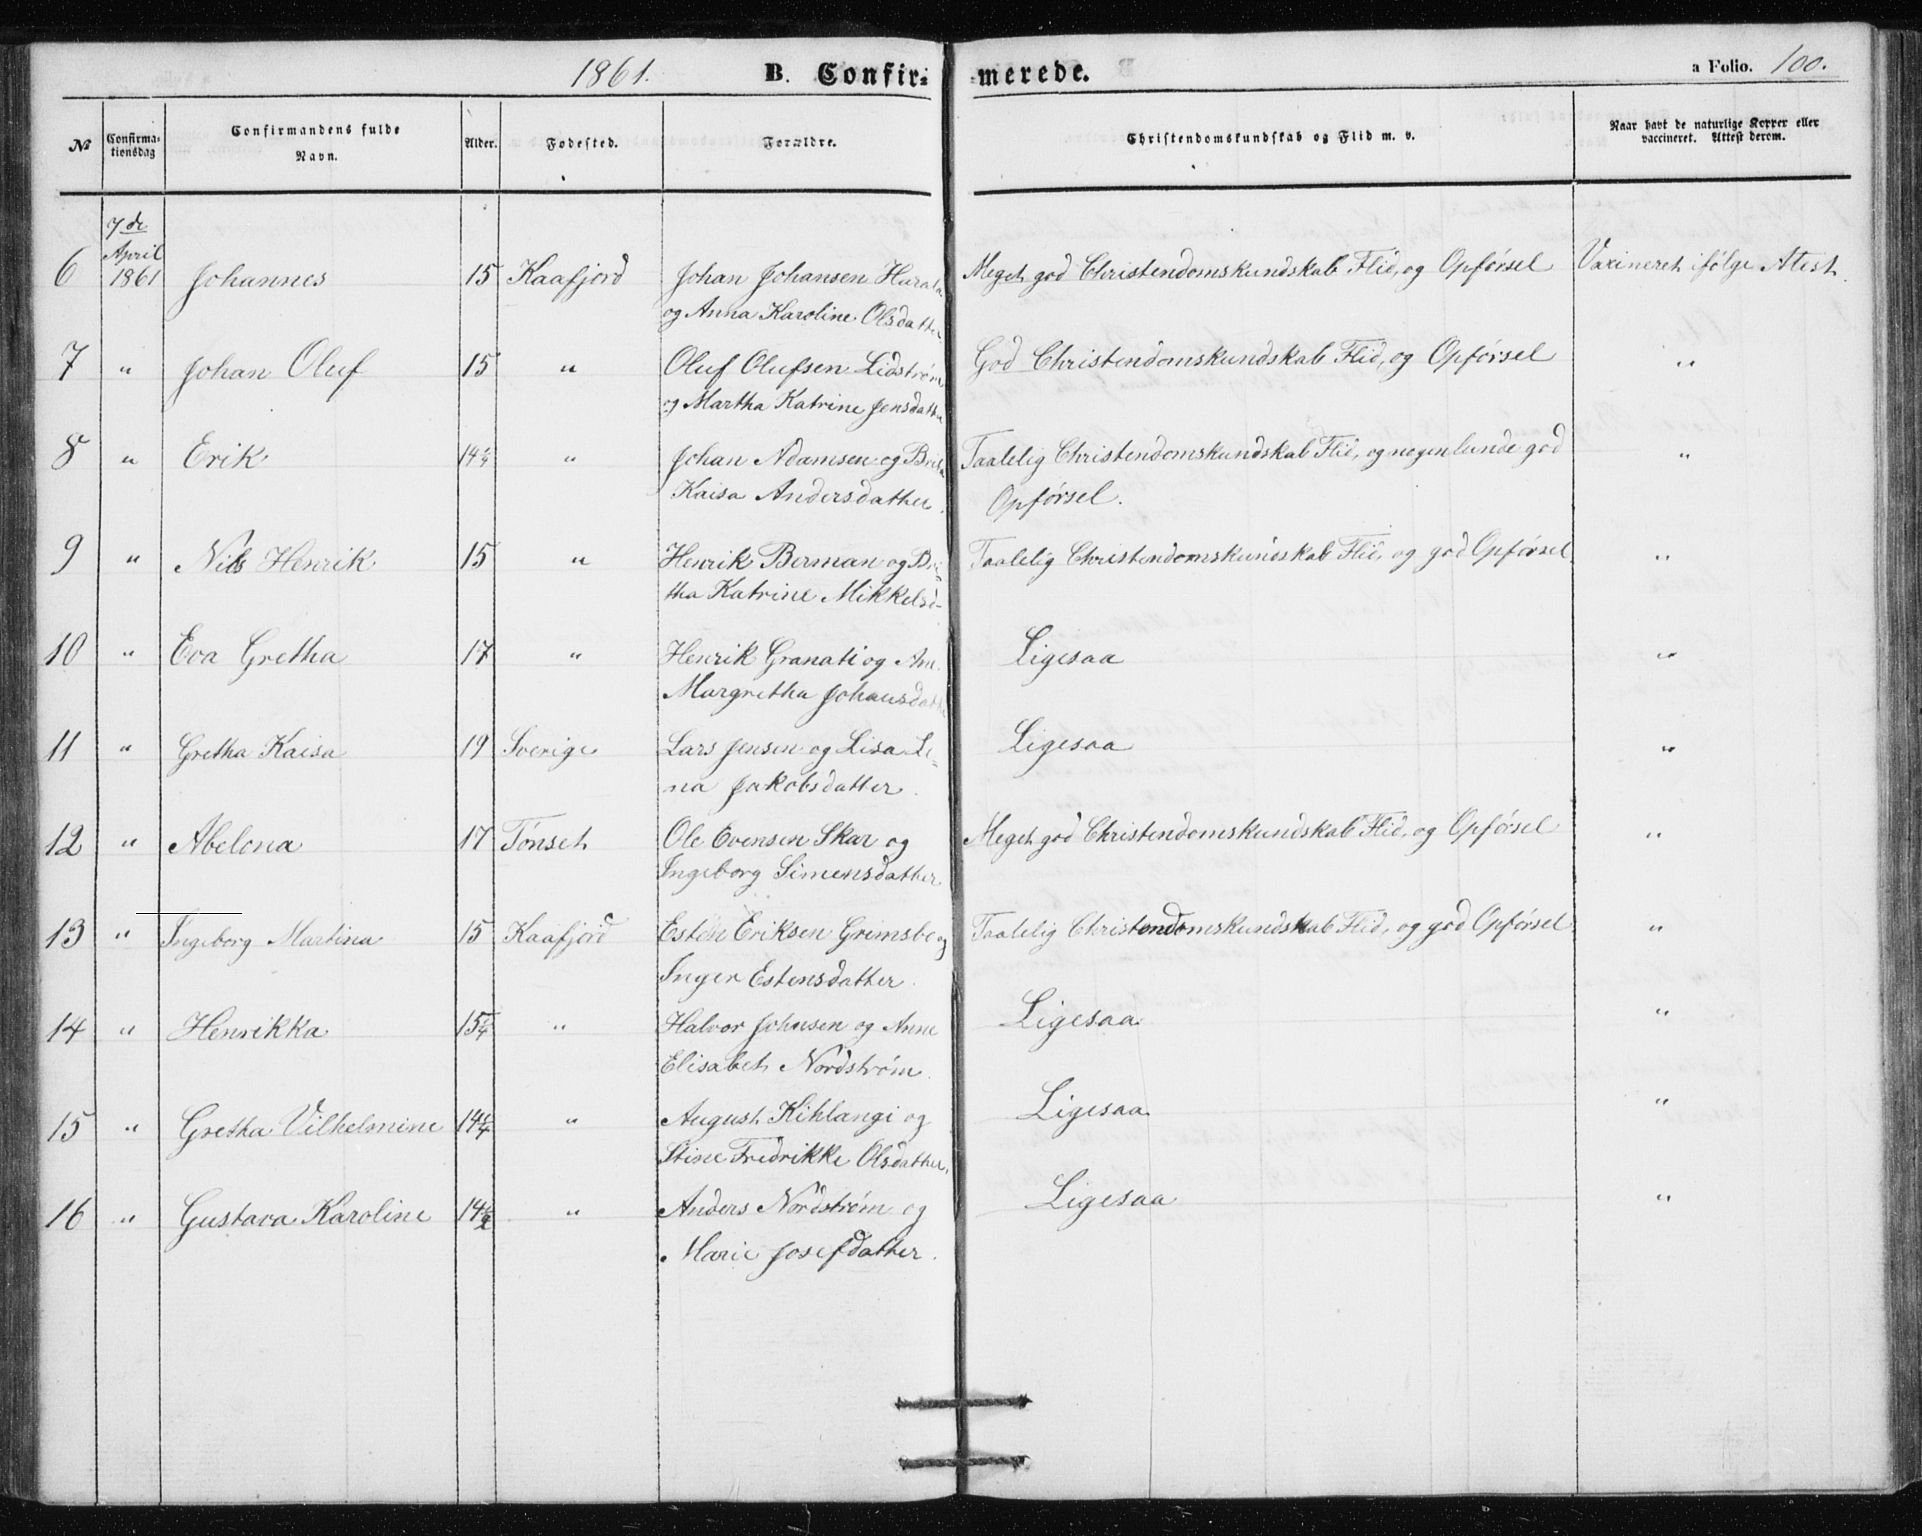 1861. B. Confir= merede. a Folio. 100.
№ Confirma=tionsdag Confirmandens fulde Navn. Alder. Fødested. Forældre. Christendomskundskab og Flid m. v. Naar havt de naturlige Kopper eller vaccineret. Attest derom.
7de
April
6 1861 Johannes 15 Kaafjord Johan Johansen Meget god Christendomskundskab Flid, og Opførsel Vaxineret ifølge Atest.
og Anna Karoline Olsdatter
7 " Johan Oluf 15 " Oluf Olufsen Lidstrøm God Christendomskundskab Flid, og Opførsel "
og Martha Katrine Jensdatter
8 " Erik 14¼ " Johan Adamsen og Brita Taalelig Christendomskundskab Flid, og nogenlunde god "
Kaisa Andersdatter. Opførsel.
9 " Nils Henrik 15 " Henrik Berman og Bri= Taalelig Christendomskundskab Flid, og god Opførsel "
tha Katrine Mikkelsd-
10 " Eva Gretha 17 " Henrik Granati og An Ligesaa "
Margretha Johansdatter
11 " Gretha Kaisa 19 Sverige Lars Jensen og Lisa Le= Ligesaa "
na Jakobsdatter.
12 " Abelona 17 Tønset Ole Evensen Skar og Meget god Christendomskundskab Flid, og Opførsel "
Ingeborg Simensdatter
13 " Ingeborg Martina 15 Kaafjord Esten Eriksen Grimsbo og Taalelig Christendomskundskab Flid, og god Opførsel "
Inger Estensdatter.
14 " Henrikka 15¼ " Halvor Johnsen og Anne Ligesaa "
Elisabet Nordstrøm.
15 " Gretha Vilhelmine 14¼ " August Kihlangi og Ligesaa "
Stine Fredrikke Olsdatter.
16 " Gustava Karoline 14½ " Anders Nordstrøm og Ligesaa "
Marie Josefdatter.